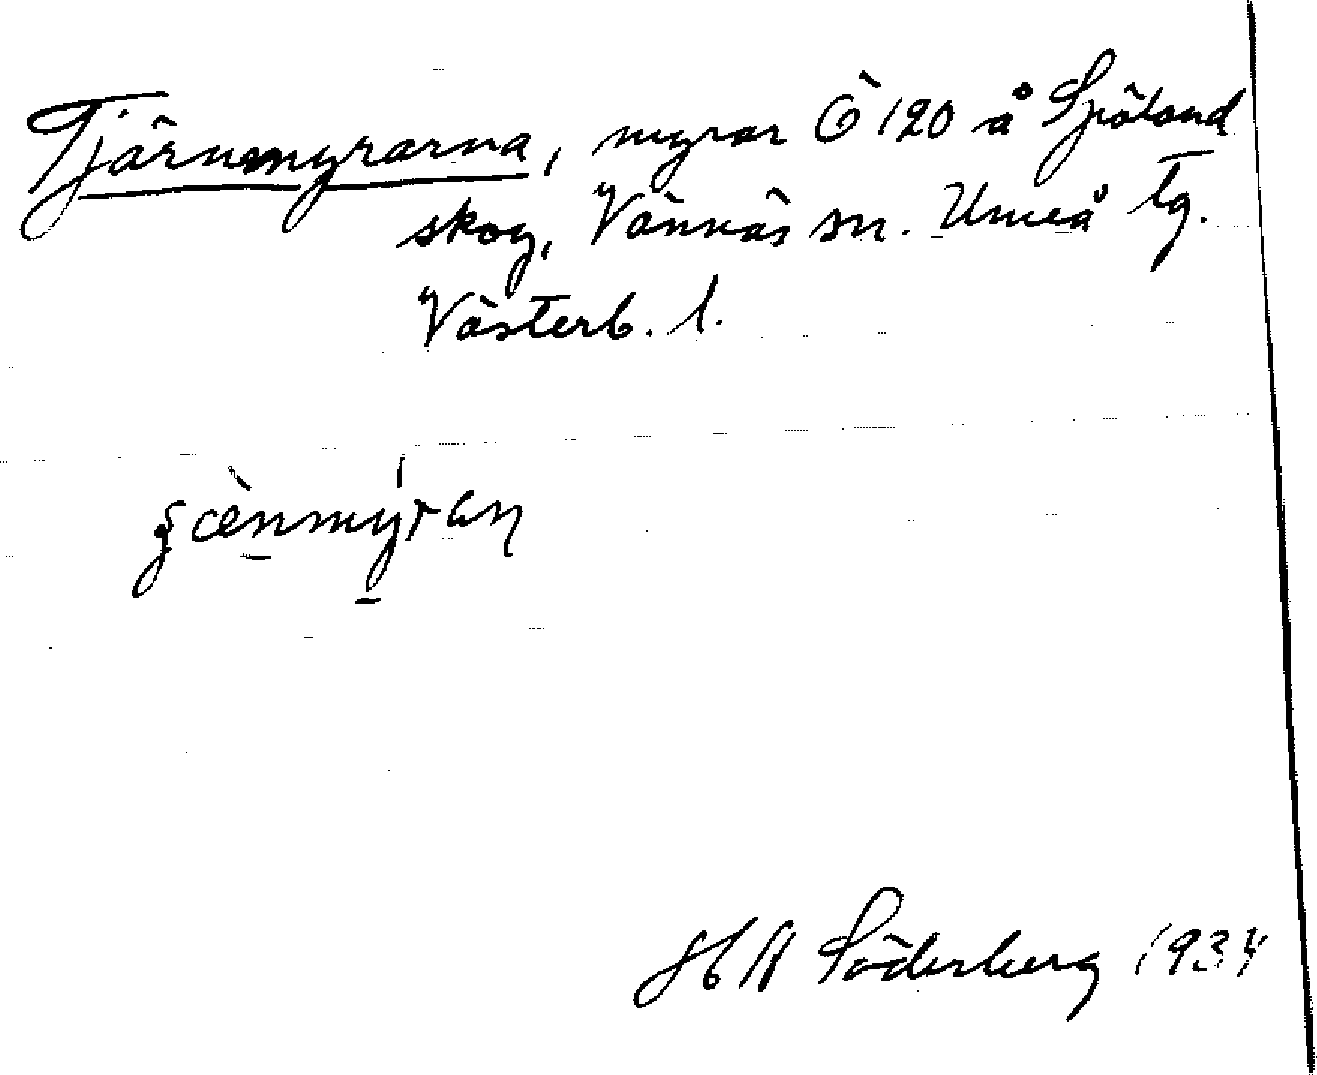 Tjärnmyrarna, myrar Ö 120 å Spöland
skog, Vännäs sn. Umeå tg.
Västerb. l.
HN Söderberg 1934